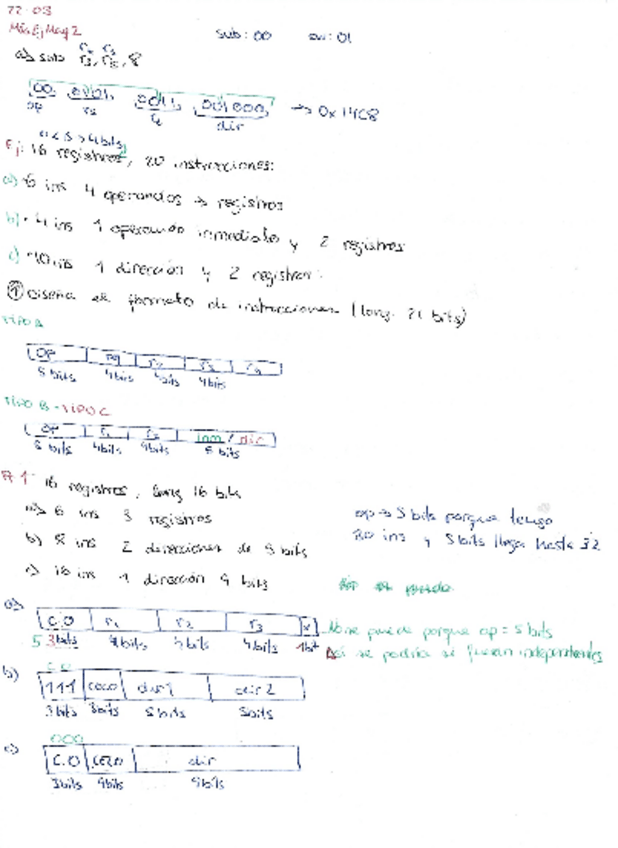 22-03
Sub: 00 01
a) sub r3, r5, 8
00 0101 0011 001000 → 0x14C8
op dir
4 bits
Ej: 16 registros, 20 instrucciones:
a) 6 ins 4 operandos → registros
b) 4 ins 1 operando inmediato y 2 registros
c) 10 ins 1 dirección y 2 registros
① Diseña el formato de instrucciones (long. 21 bits)
TIPO A
OP
5 bits 4 bits 4 bits 4 bits
TIPO B - TIPO C
OP r1 r2 inm / dir
5 bits 4 bits 4 bits
16 registros, long 16 bits
a) 6 ins 3 registros
b) 8 ins 2 direcciones de 5 bits
c) 1 dirección 9 bits
op → 5 bits porque tengo
20 ins y 5 bits llega hasta 32
a)
C.O r1 r2 r3 x
5 3 bits 4 bits 4 bits 4 bits 1 bit
No se puede porque op = 5 bits
Así se podría si fueran independientes
b)
C.O
111 dir 1 dir 2
3 bits 3 bits 5 bits 5 bits
000
c)
C.O dir
3 bits 4 bits 9 bits